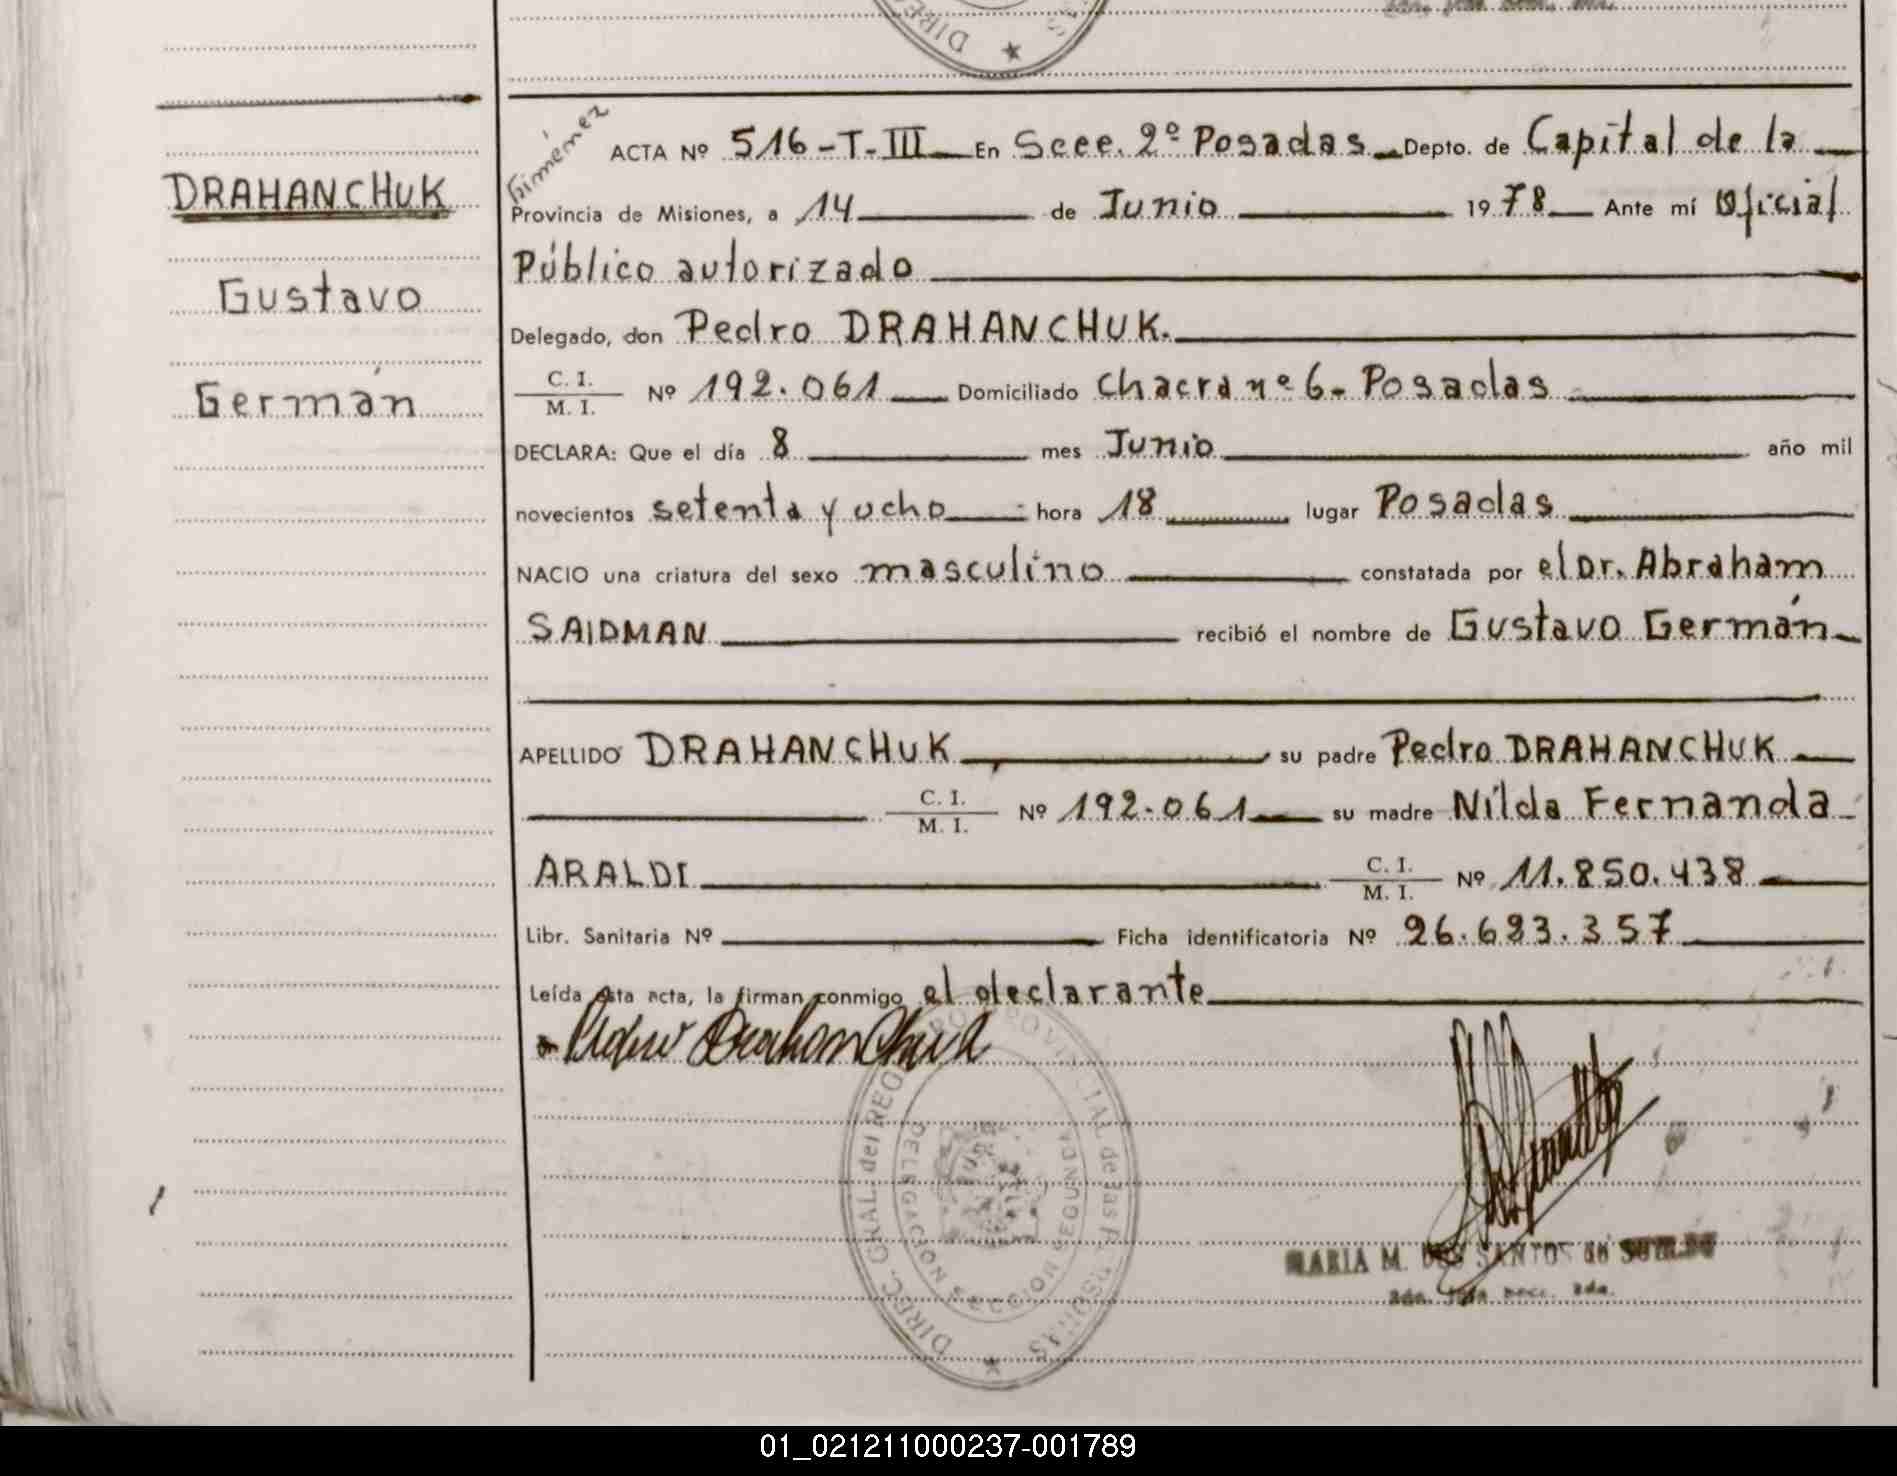 DIREC
DRAHANCHUK
Gustavo
Germán
Giménez
ACTA Nº 516-T-III En Scee. 2º Posadas Depto. de Capital de la
Provincia de Misiones, a 14 de Junio 1978 Ante mí Oficial
Público autorizado
Delegado, don Pedro DRAHANCHUK.
C. I.
M. I. Nº 192.061 Domiciliado Chacra nº 6- Posadas
DECLARA: Que el día 8 mes Junio año mil
novecientos setenta y ocho hora 18 lugar Posadas
NACIO una criatura del sexo masculino constatada por el Dr. Abraham
SAIDMAN recibió el nombre de Gustavo Germán
APELLIDO DRAHANCHUK su padre Pedro DRAHANCHUK
C. I.
M. I. Nº 192.061 su madre Nilda Fernanda
ARALDI C. I.
M. I. Nº 11.850.438
Libr. Sanitaria Nº Ficha identificatoria Nº 26.623.357
Leída esta acta, la firman conmigo el declarante
Pedro Drahanchuk
DIREC. GRAL. del REGISTRO PROVINCIAL de las PERSONAS
DELEGACION SECCION SEGUNDA
MARIA M. DOS SANTOS de
01_021211000237-001789